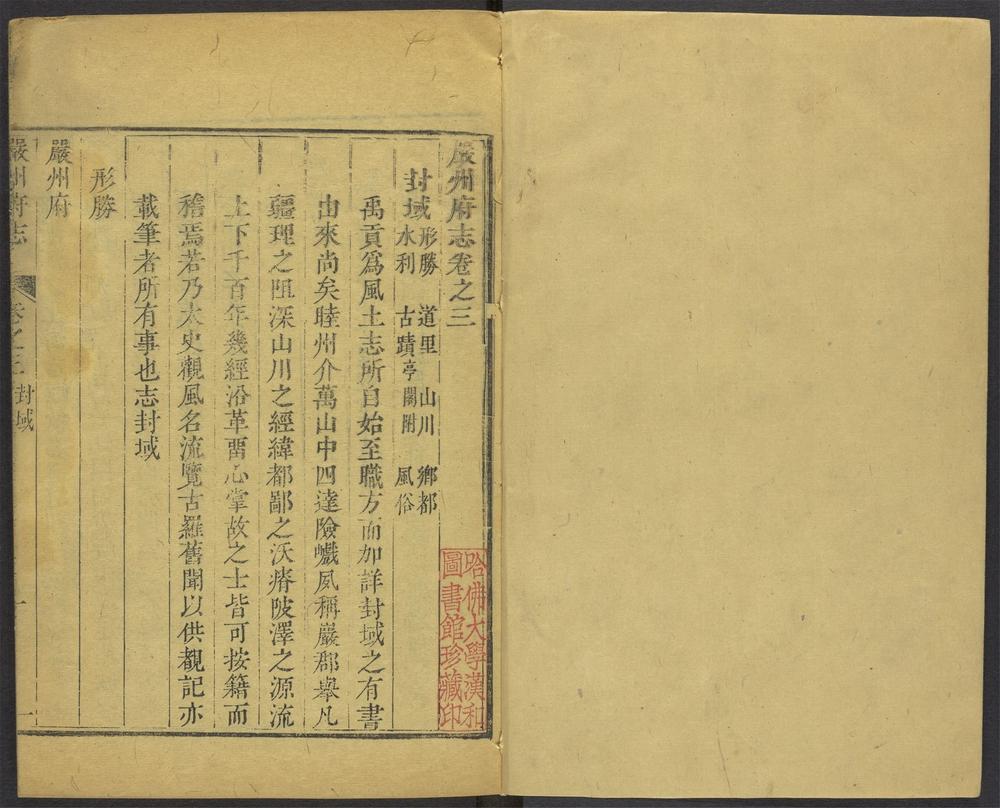 嚴州府志卷之三
封域 形勝 道里 山川 鄉都
水利 古蹟 亭閣附 風俗
禹貢爲風土志所自始至職方而加詳封域之有書
由來尚矣睦州介萬山中四達險巇夙稱巖郡舉凡
疆理之阻深山川之經緯都鄙之沃瘠陂澤之源流
上下千百年幾經沿革畱心掌故之士皆可按籍而
稽焉若乃太史觀風名流覽古羅舊聞以供覩記亦
載筆者所有事也志封域
形勝
嚴州府
嚴州府志 卷之三 封域 一
哈佛大學漢和
圖書館珍藏印